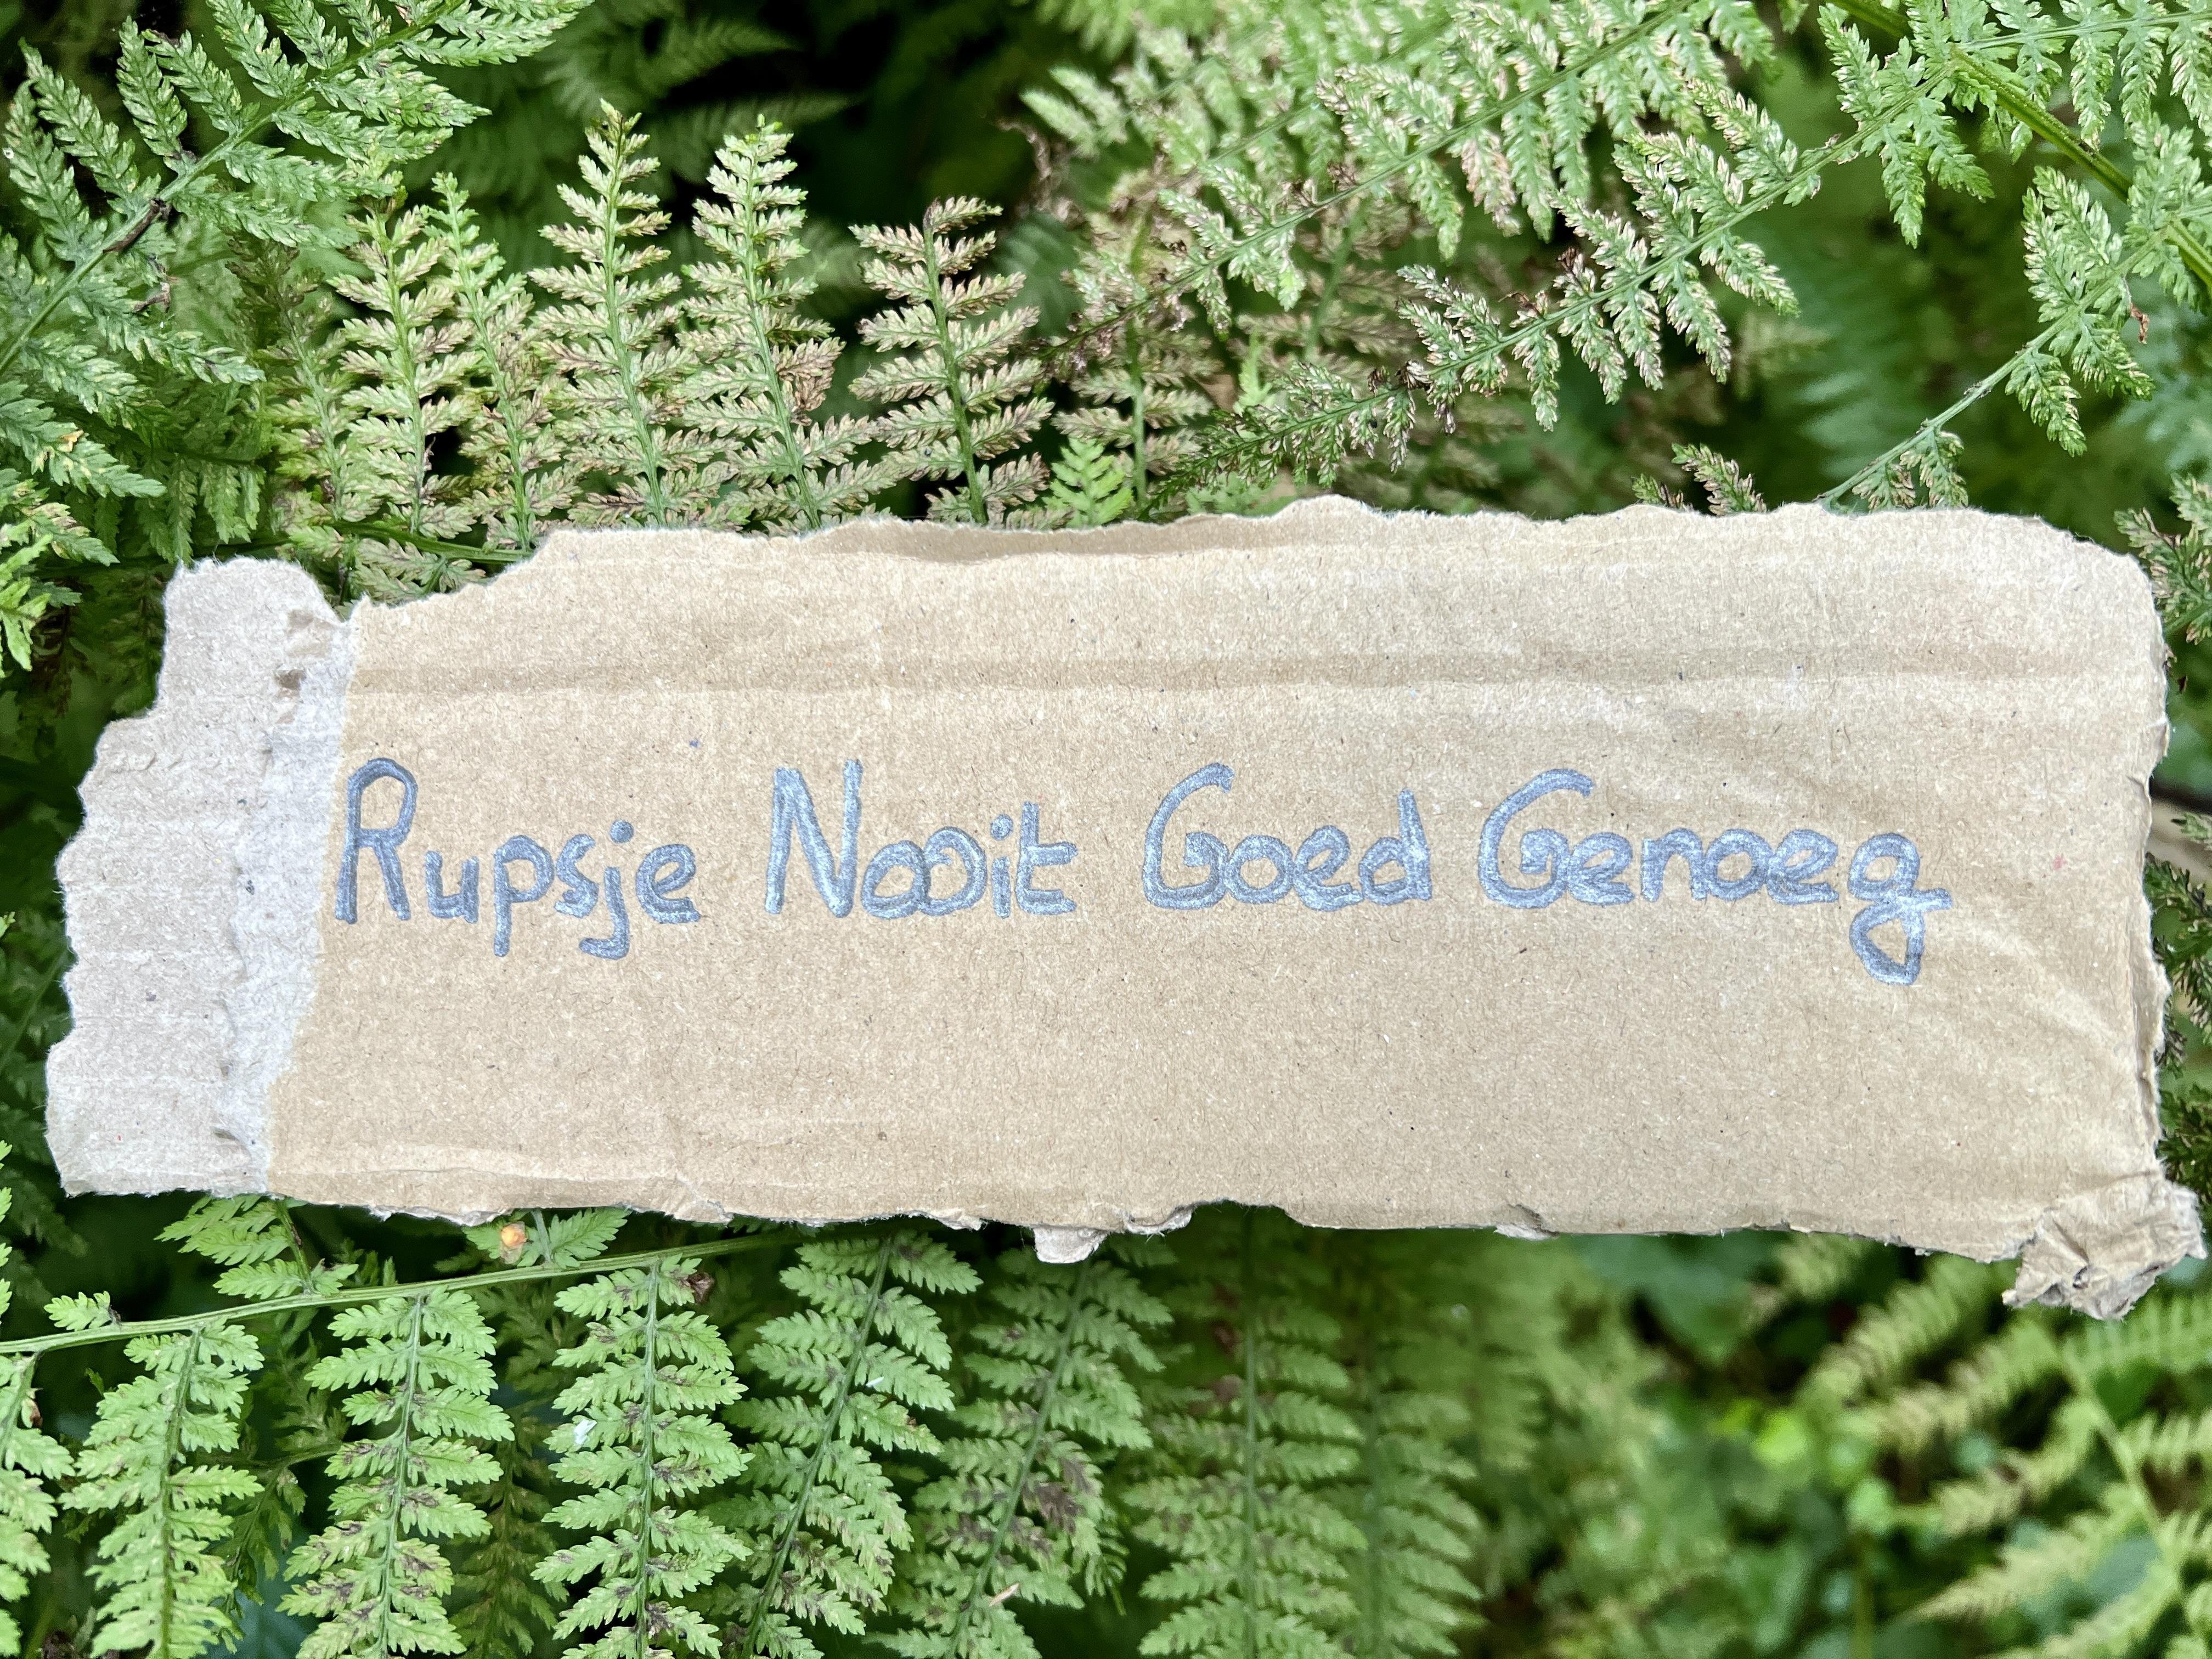 Rupsje Nooit Goed Genoeg